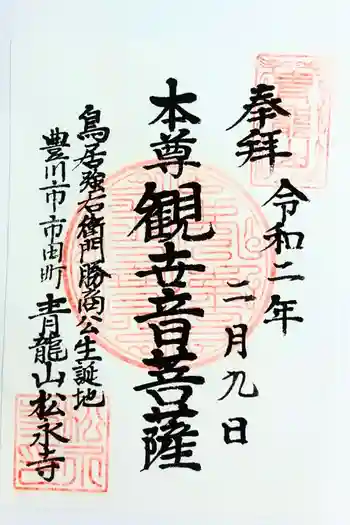 奉拝
令和二年
二月九日
本尊観世音菩薩
鳥居強右衛門勝商公生誕地
豊川市市田町
青龍山松永寺